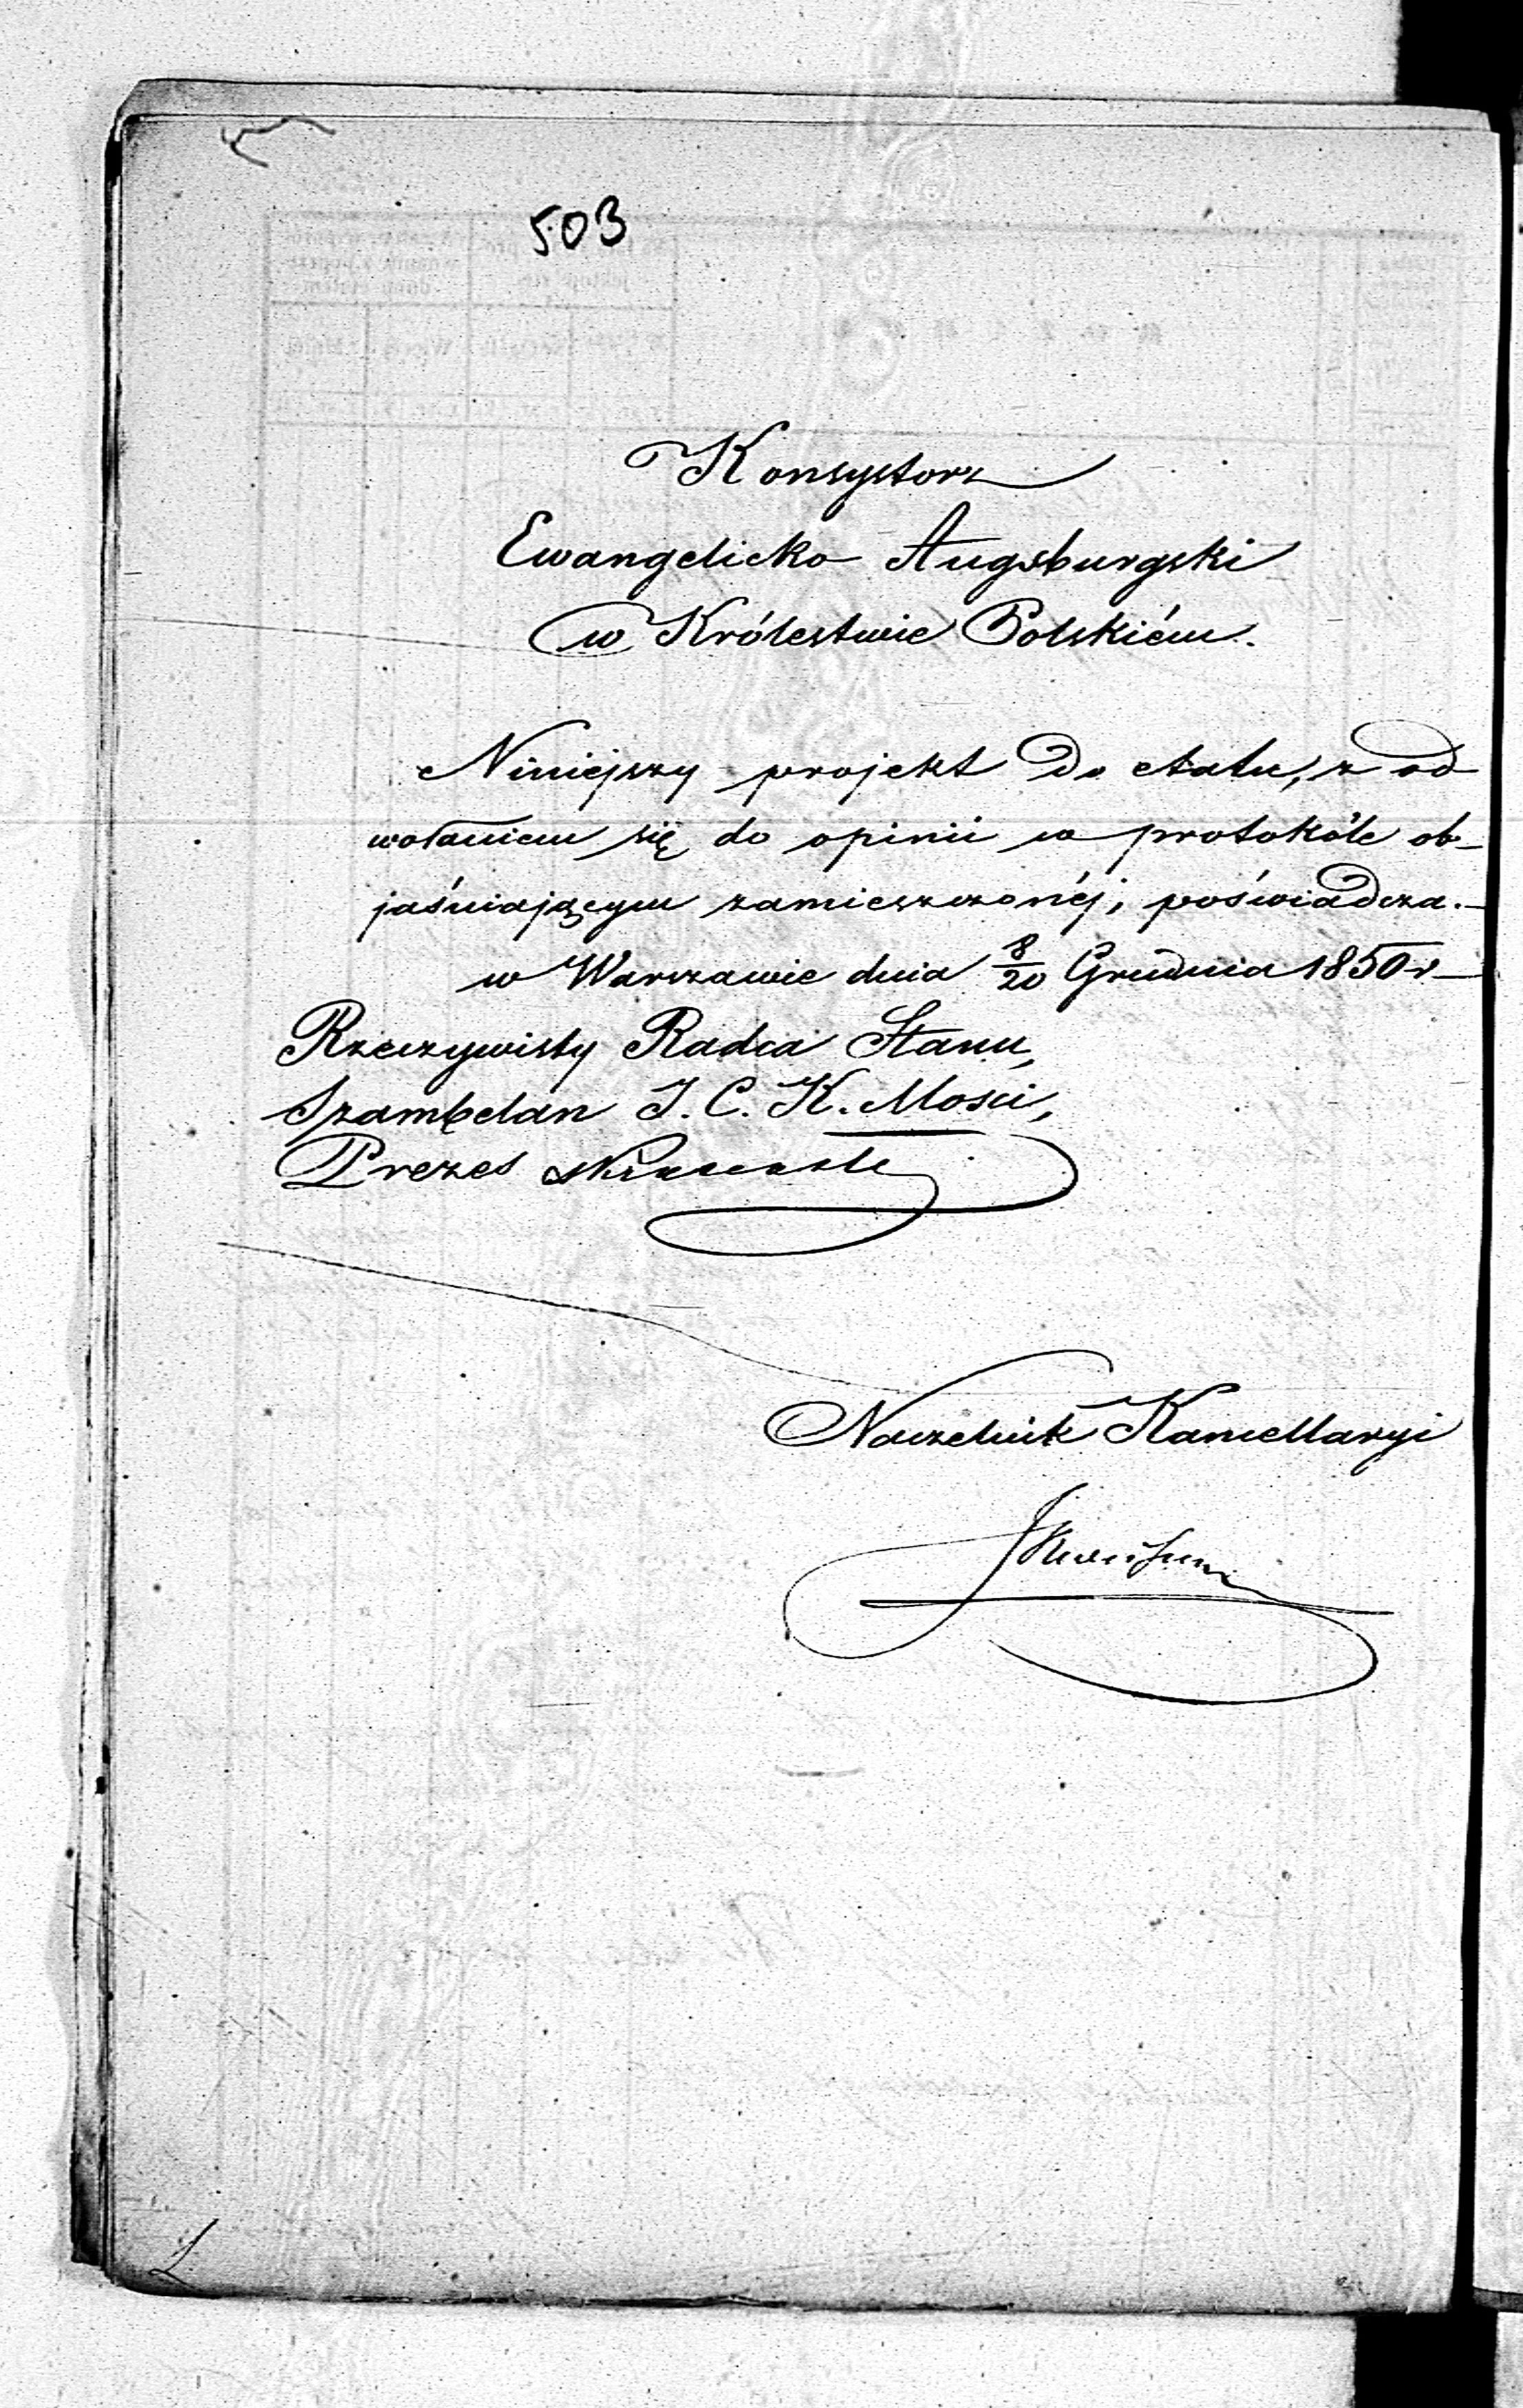 503
Konsystorz
Ewangelicko Augsburgski
w Królestwie Polskiém.
Niniejszy projekt do etatu, z od
wołaniem się do opinii w protokóle ob-
jaśniającym zamieszczonéj, poświadcza.-
w Warszawie dnia 8/20 Grudnia 1850 r
Rzeczywisty Radca Stanu,
Szambelan J. C. K. Mosci,
Prezes
Naczelnik Kancellaryi